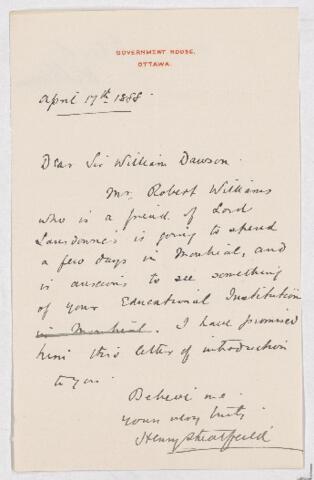 GOVERNMENT HOUSE.
OTTAWA.
April 17th 1888.
Dear Sir William Dawson.
Mr. Robert Williams
who is a friend of Lord
Lansdowne's is going to spend
a few days in Montreal, and
is anxious to see something
of your Educational Institution
in Montreal. I have promised
him this letter of introduction
to you.
Believe me
yours very truly
Henry Streatfeild